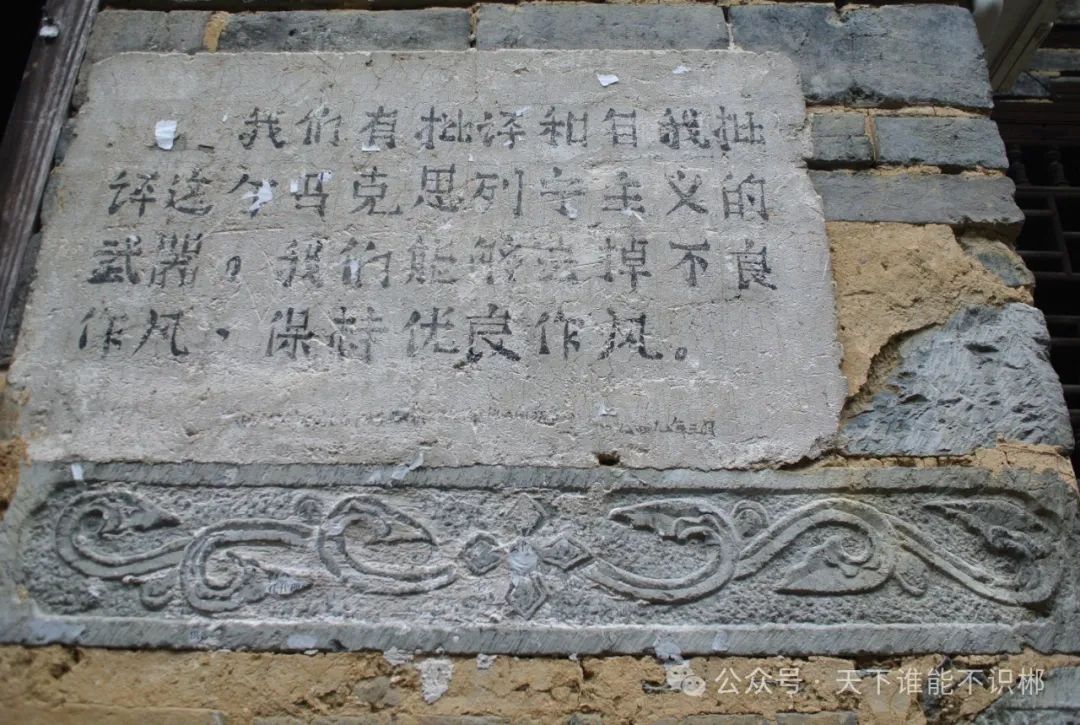 我们有批评和自我批
评这个马克思列宁主义的
武器。我们能够去掉不良
作风，保持优良作风。
公众号·天下谁能不识郴